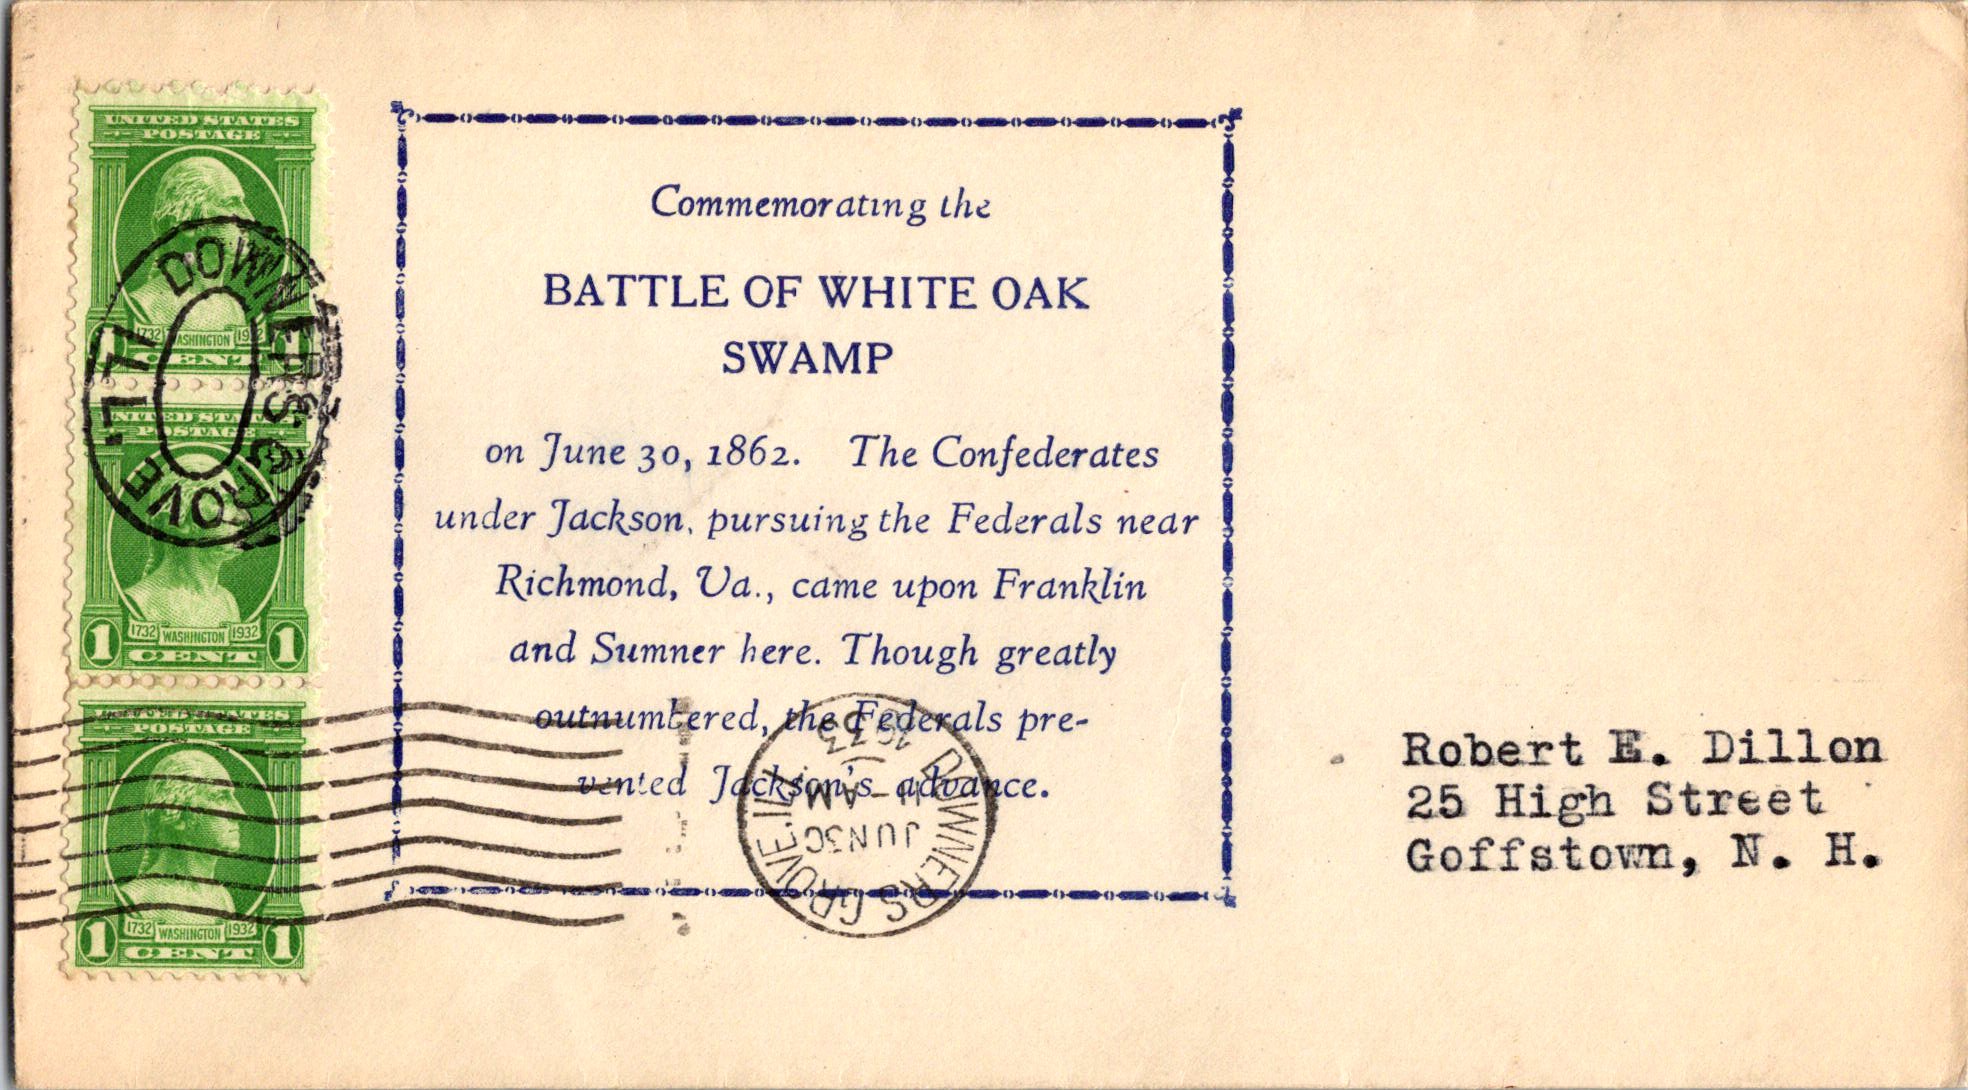 UNITED STATES
POSTAGE
1732 WASHINGTON 1932
1 CENT 1
UNITED STATES
POSTAGE
1732 WASHINGTON 1932
1 CENT 1
UNITED STATES
POSTAGE
1732 WASHINGTON 1932
1 CENT 1
DOWNERS GROVE, ILL
Commemorating the
BATTLE OF WHITE OAK
SWAMP
on June 30, 1862. The Confederates
under Jackson, pursuing the Federals near
Richmond, Va., came upon Franklin
and Sumner here. Though greatly
outnumbered, the Federals pre-
vented Jackson's advance.
DOWNERS GROVE, ILL.
JUN 30
AM
1933
Robert E. Dillon
25 High Street
Goffstown, N. H.